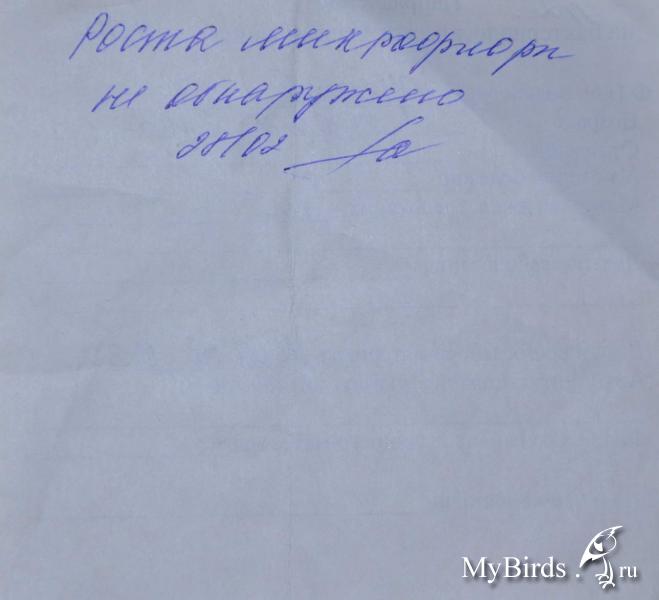 Роста микрофлоры
не обнаружено
28/02
MyBirds.ru